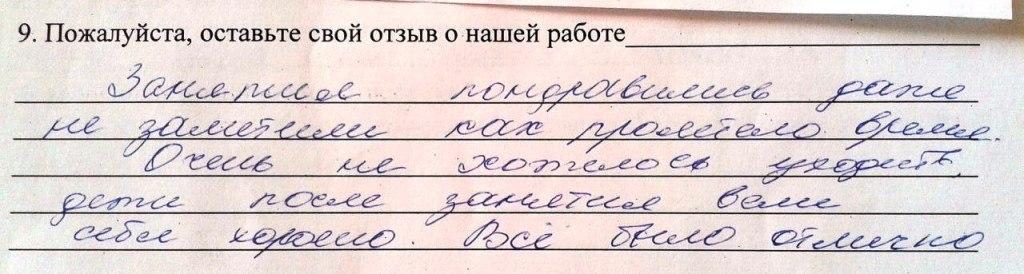 9. Пожалуйста, оставьте свой отзыв о нашей работе
Занятия пондравились даже
не заметили как пролетело время.
Очень не хотелось уходить,
дети после занятия вели
себя хорошо. Всё было отлично